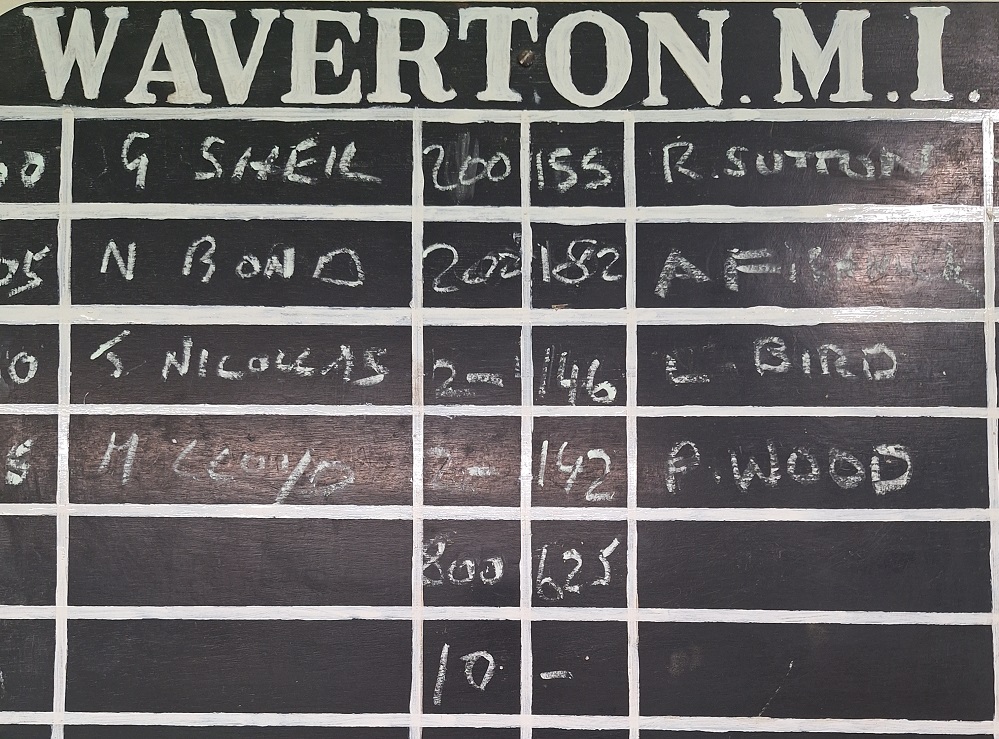 WAVERTON. M.I.
G SHEIL 200 155 R. SUTTON
N BOND 200 182 A
S NICOLLAS 2- 146 L. BIRD
H. LLOYD 2- 142 P. WOOD
800 625
10 -